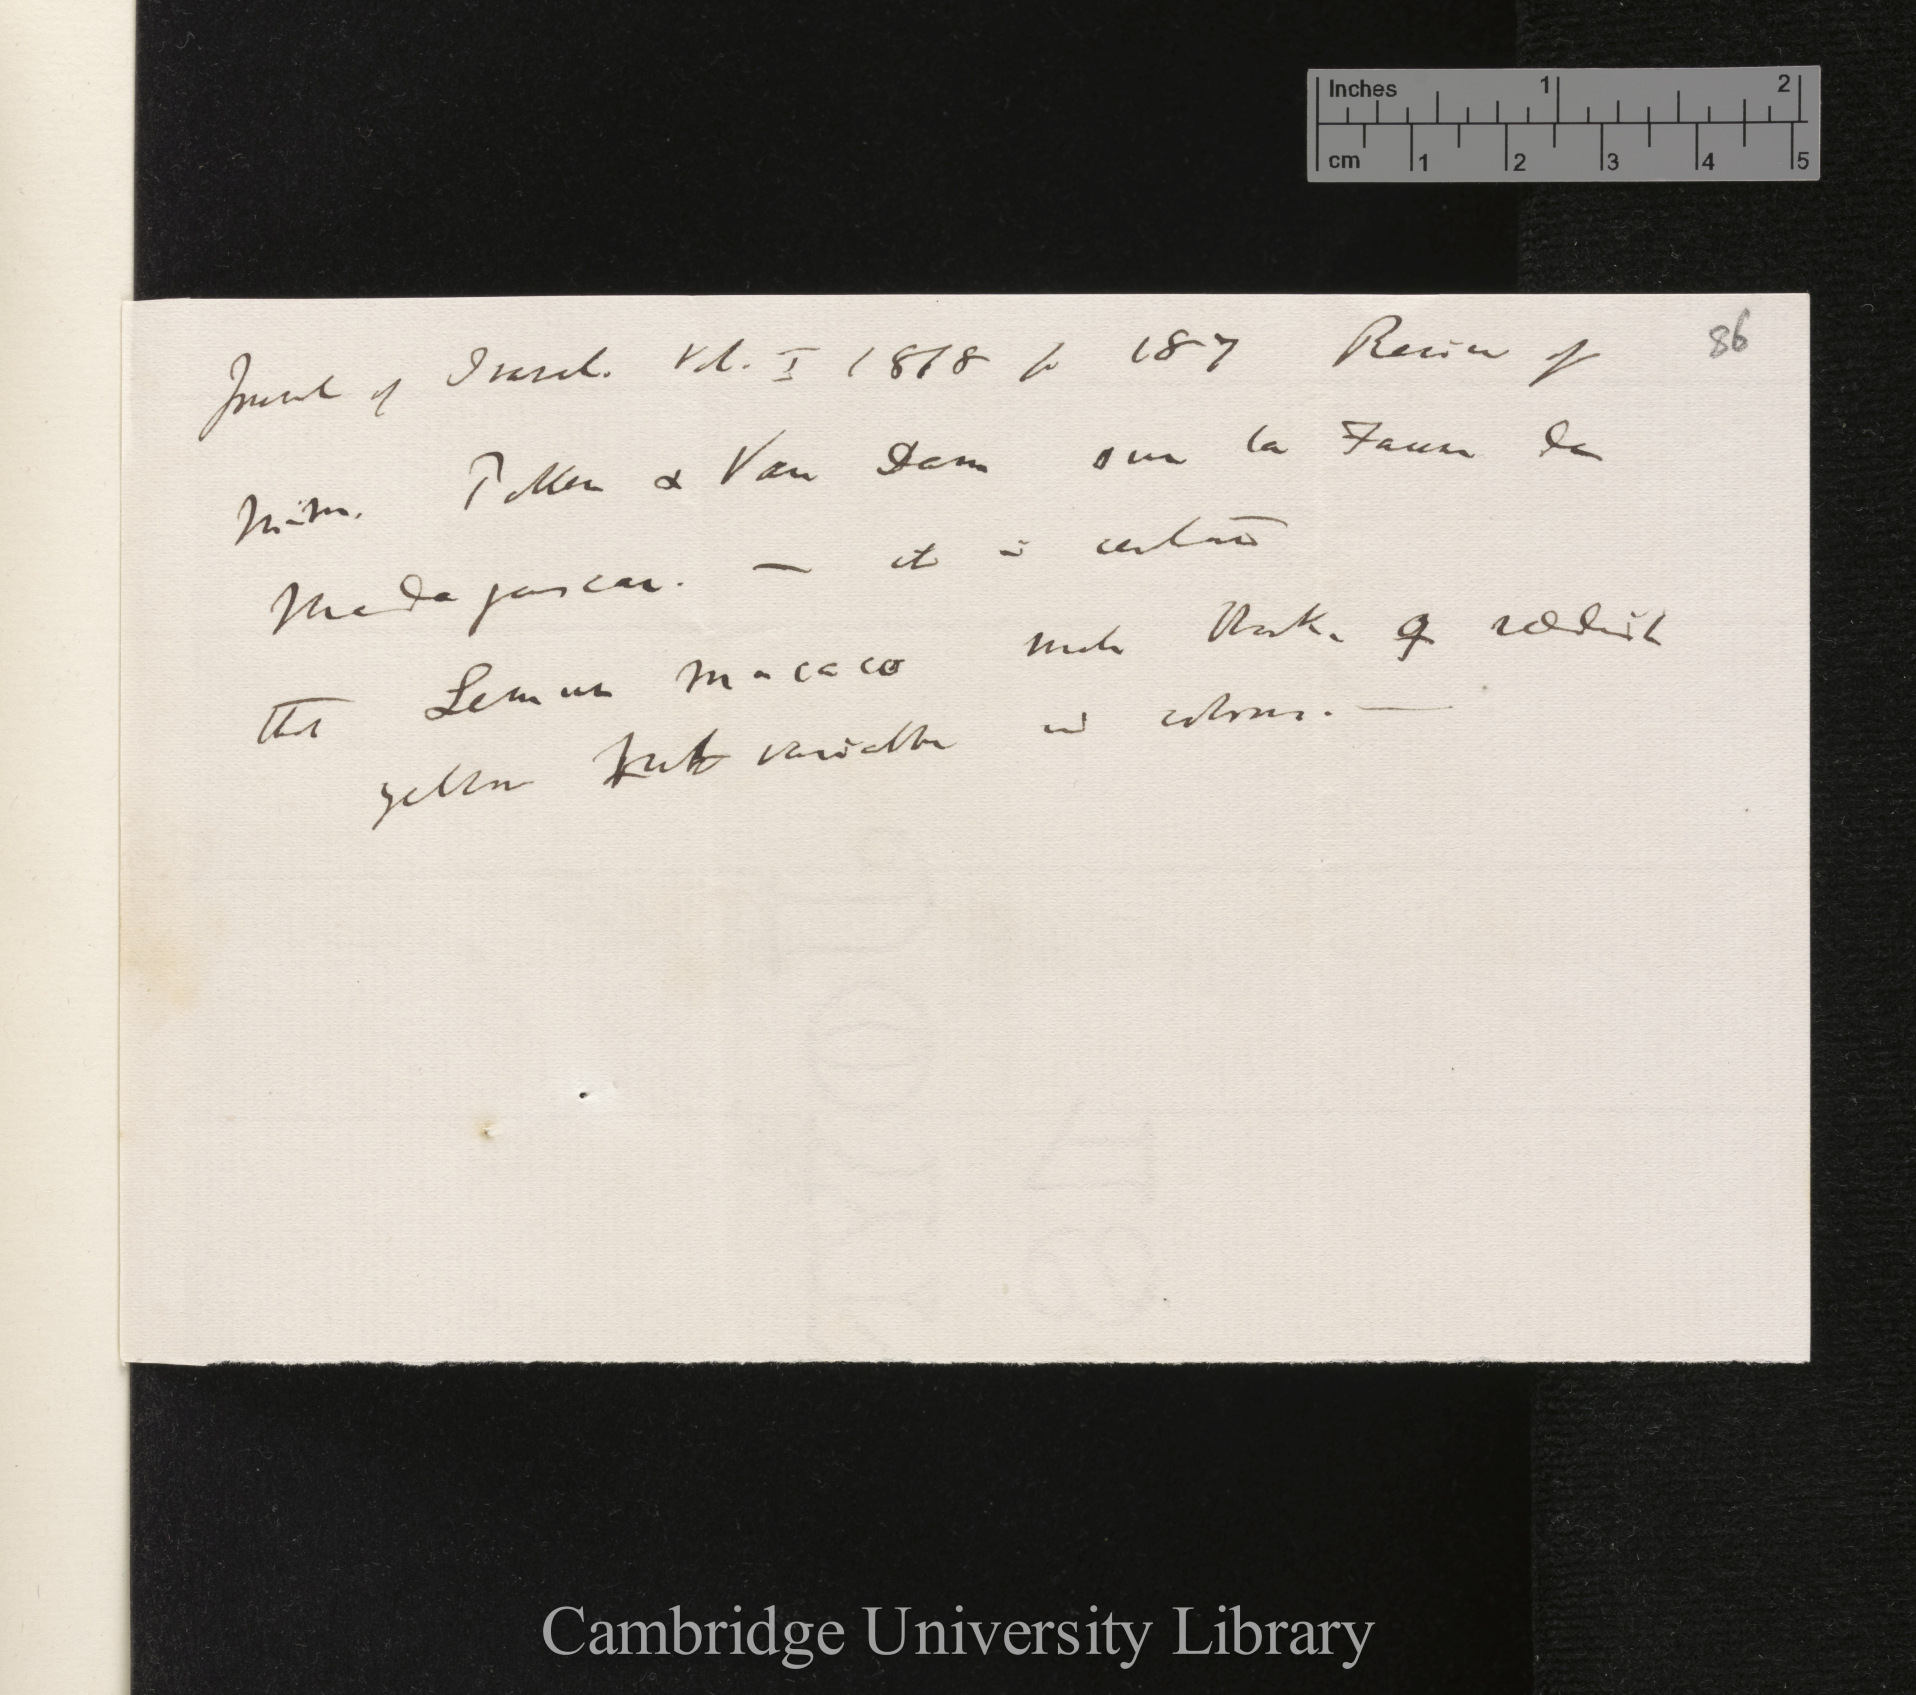 Inches 1 2
cm 1 2 3 4 5
86
Journal of Travel. Vol. I 1868 p 187 Review of
MM. Pollen & Van Dam sur la Faune de
Madagascar. — it is certain
that Lemur macaco male black ♀ reddish
yellow but variable in colour. —
Cambridge University Library